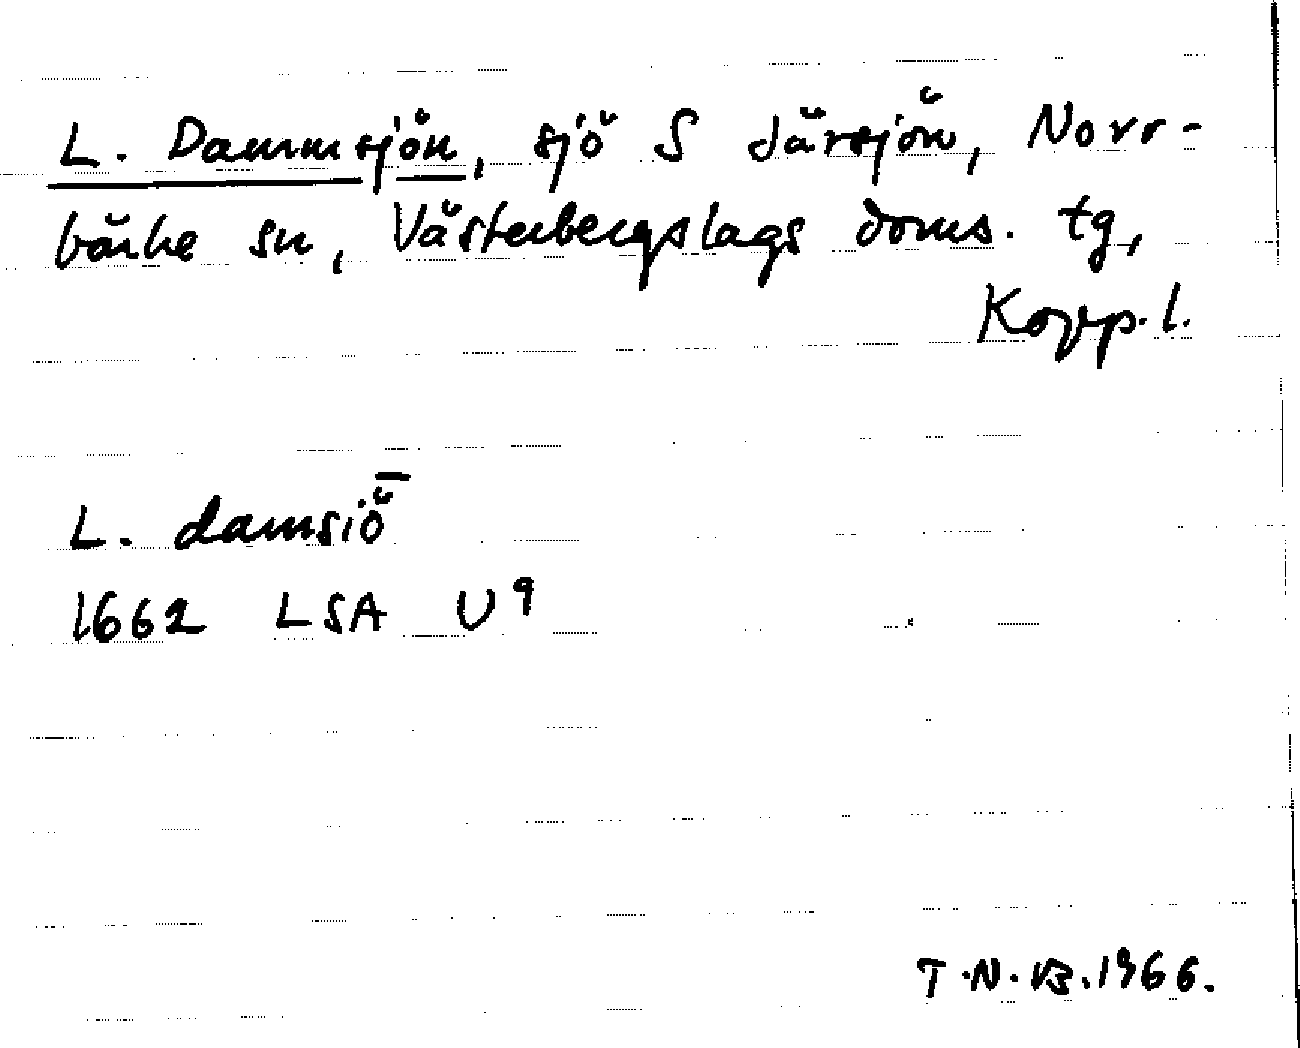 L. Dammsjön, sjö S därsjön, Norr-
bärke sn, Västerbergslags doms. tg,
Kopp. l.
L. damsiȫ
1662 LSA U9
T.N.B. 1966.